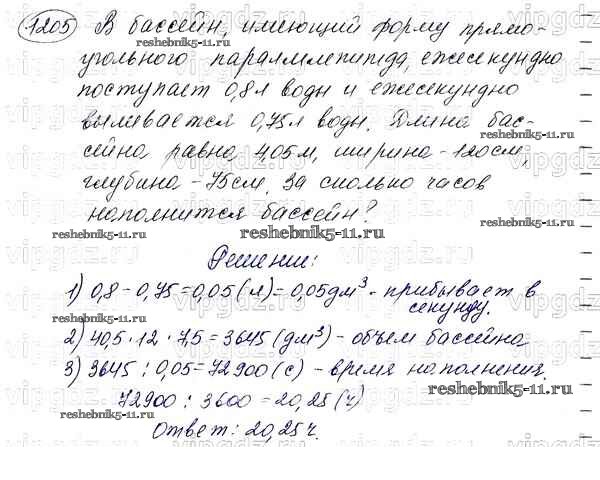 1205 В бассейн, имеющий форму прямо-
угольного параллелепипеда, ежесекундно
поступает 0,8 л воды и ежесекундно
выливается 0,75 л воды. Длина бас-
сейна равна 4,05 м, ширина - 120 см,
глубина - 75 см. За сколько часов
наполнится бассейн?
Решение:
1) 0,8 - 0,75 = 0,05 (л) = 0,05 дм³ - прибывает в
секунду.
2) 40,5 · 12 · 7,5 = 3645 (дм³) - объем бассейна
3) 3645 : 0,05 = 72900 (с) - время наполнения.
72900 : 3600 = 20,25 (ч)
Ответ: 20,25 ч.
reshebnik5-11.ru
reshebnik5-11.ru
reshebnik5-11.ru
reshebnik5-11.ru
reshebnik5-11.ru
reshebnik5-11.ru
reshebnik5-11.ru
reshebnik5-11.ru
reshebnik5-11.ru
reshebnik5-11.ru
vipgdz.ru